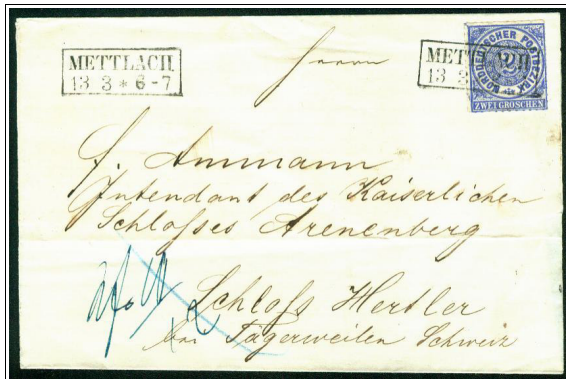 METTLACH
13 3 * 6-7
METT
13 3
NORDDEUTSCHER POSTBEZIRK
ZWEI GROSCHEN
Herrn
J. Ammann
Intendant des Kaiserlichen
Schlosses Arenenberg
Schloss Hertler
bei Tägerweilen Schweiz